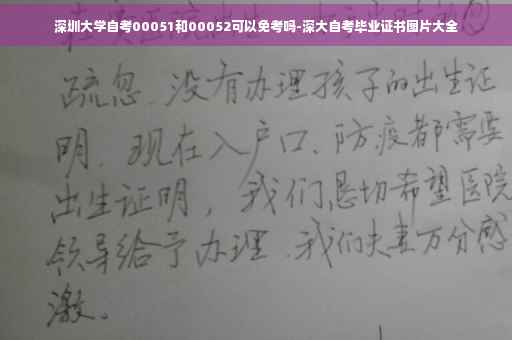 深圳大学自考00051和00052可以免考吗-深大自考毕业证书图片大全
疏忽、没有办理孩子的出生证
明、现在入户口、防疫都需要
出生证明，我们恳切希望医院
领导给予办理、我们夫妻万分感
激。